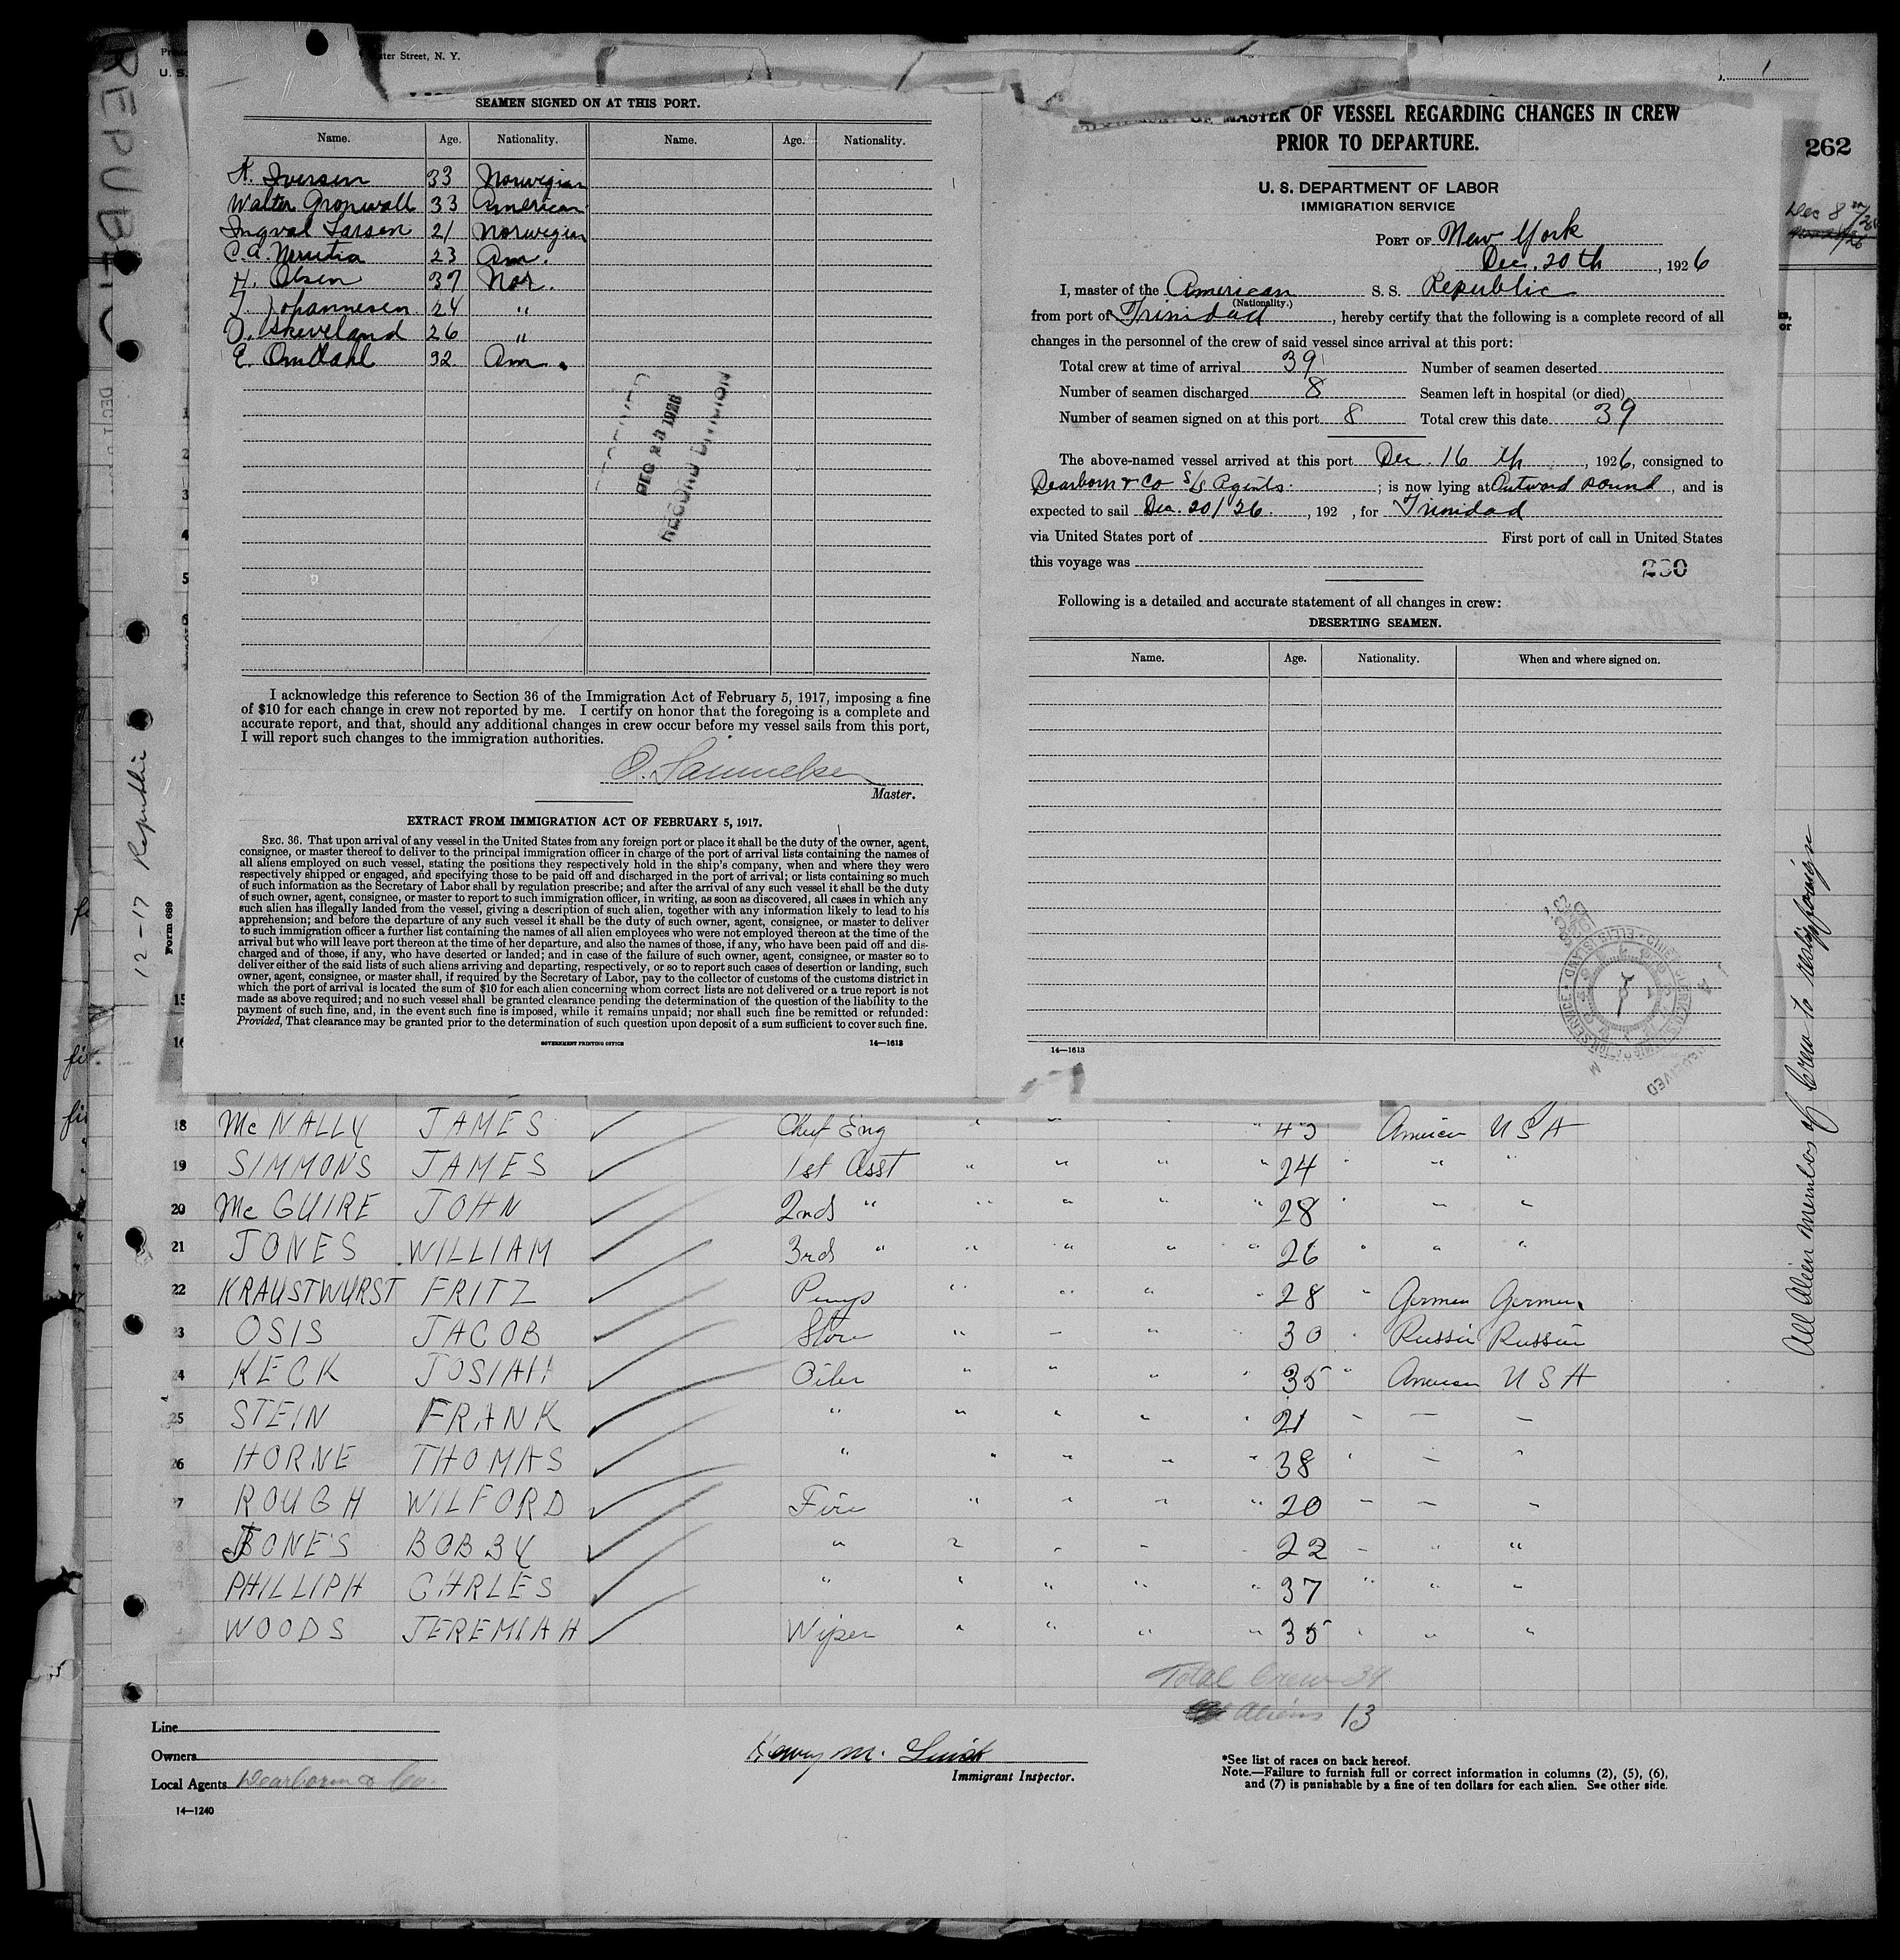 ter Street, N. Y.
U. S.
REPUBLIC
12-17 Republic
Form 689
SEAMEN SIGNED ON AT THIS PORT.
Name. Age. Nationality. Name. Age. Nationality.
K. Iversen 33 Norwegian
Walter Gronwall 33 American
Ingval Larsen 21 Norwegian
23 Am.
H. Olsen 37 Nor.
J. Johannesen 24 "
O. Skeveland 26 "
E. Omdahl 32 Am.
DEC 23 1926
RECORD DIVISION
I acknowledge this reference to Section 36 of the Immigration Act of February 5, 1917, imposing a fine
of $10 for each change in crew not reported by me. I certify on honor that the foregoing is a complete and
accurate report, and that, should any additional changes in crew occur before my vessel sails from this port,
I will report such changes to the immigration authorities.
O. Samuelsen
Master.
EXTRACT FROM IMMIGRATION ACT OF FEBRUARY 5, 1917.
SEC. 36. That upon arrival of any vessel in the United States from any foreign port or place it shall be the duty of the owner, agent,
consignee, or master thereof to deliver to the principal immigration officer in charge of the port of arrival lists containing the names of
all aliens employed on such vessel, stating the positions they respectively hold in the ship's company, when and where they were
respectively shipped or engaged, and specifying those to be paid off and discharged in the port of arrival; or lists containing so much
of such information as the Secretary of Labor shall by regulation prescribe; and after the arrival of any such vessel it shall be the duty
of such owner, agent, consignee, or master to report to such immigration officer, in writing, as soon as discovered, all cases in which any
such alien has illegally landed from the vessel, giving a description of such alien, together with any information likely to lead to his
apprehension; and before the departure of any such vessel it shall be the duty of such owner, agent, consignee, or master to deliver
to such immigration officer a further list containing the names of all alien employees who were not employed thereon at the time of the
arrival but who will leave port thereon at the time of her departure, and also the names of those, if any, who have been paid off and dis-
charged and of those, if any, who have deserted or landed; and in case of the failure of such owner, agent, consignee, or master so to
deliver either of the said lists of such aliens arriving and departing, respectively, or so to report such cases of desertion or landing, such
owner, agent, consignee, or master shall, if required by the Secretary of Labor, pay to the collector of customs of the customs district in
which the port of arrival is located the sum of $10 for each alien concerning whom correct lists are not delivered or a true report is not
made as above required; and no such vessel shall be granted clearance pending the determination of the question of the liability to the
payment of such fine, and, in the event such fine is imposed, while it remains unpaid; nor shall such fine be remitted or refunded:
Provided, That clearance may be granted prior to the determination of such question upon deposit of a sum sufficient to cover such fine.
GOVERNMENT PRINTING OFFICE 14—1613
OF MASTER OF VESSEL REGARDING CHANGES IN CREW
PRIOR TO DEPARTURE.
U. S. DEPARTMENT OF LABOR
IMMIGRATION SERVICE
PORT OF New York
Dec. 20th, 1926
I, master of the American S. S. Republic
(Nationality.)
from port of Trinidad, hereby certify that the following is a complete record of all
changes in the personnel of the crew of said vessel since arrival at this port:
Total crew at time of arrival 39 Number of seamen deserted
Number of seamen discharged 8 Seamen left in hospital (or died)
Number of seamen signed on at this port 8 Total crew this date 39
The above-named vessel arrived at this port Dec. 16 th, 1926, consigned to
Dearborn & Co S/S Agents; is now lying at Outward Bound, and is
expected to sail Dec. 20/26, 192 , for Trinidad
via United States port of First port of call in United States
this voyage was
230
Following is a detailed and accurate statement of all changes in crew:
DESERTING SEAMEN.
Name. Age. Nationality. When and where signed on.
14—1613
1
262
Dec 8
All Alien members of Crew to reship foreign
18 McNALLY JAMES Chief Eng " " " " 45 American USA
19 SIMMONS JAMES 1st Asst " " " " 24 " " "
20 McGUIRE JOHN 2nd " " " " " 28 " " "
21 JONES WILLIAM 3rd " " " " " 26 " " "
22 KRAUSTWURST FRITZ Pump " " " " 28 " German German
23 OSIS JACOB Store " " " " 30 " Russia Russian
24 KECK JOSIAH Oiler " " " " 35 " American USA
25 STEIN FRANK " " " " " 21 " " "
26 HORNE THOMAS " " " " " 38 " " "
27 ROUGH WILFORD Fire " " " " 20 " " "
JONES BOBBY " " " " " 22 " " "
PHILLIPH CHRLES " " " " " 37 " " "
WOODS JEREMIAH Wiper " " " " 35 " " "
Total Crew 39
Aliens 13
Line
Owners
Local Agents Dearborn & Co.
14—1240
Henry M.
Immigrant Inspector.
*See list of races on back hereof.
Note.—Failure to furnish full or correct information in columns (2), (5), (6),
and (7) is punishable by a fine of ten dollars for each alien. See other side.